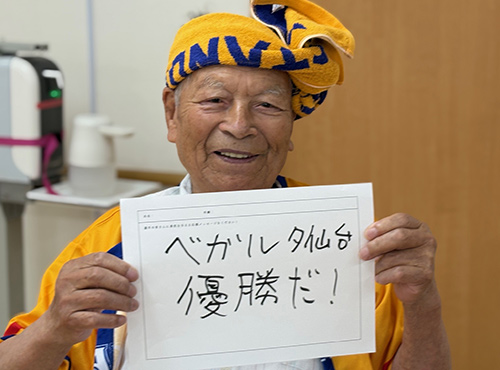 ベガルタ仙台
優勝だ!